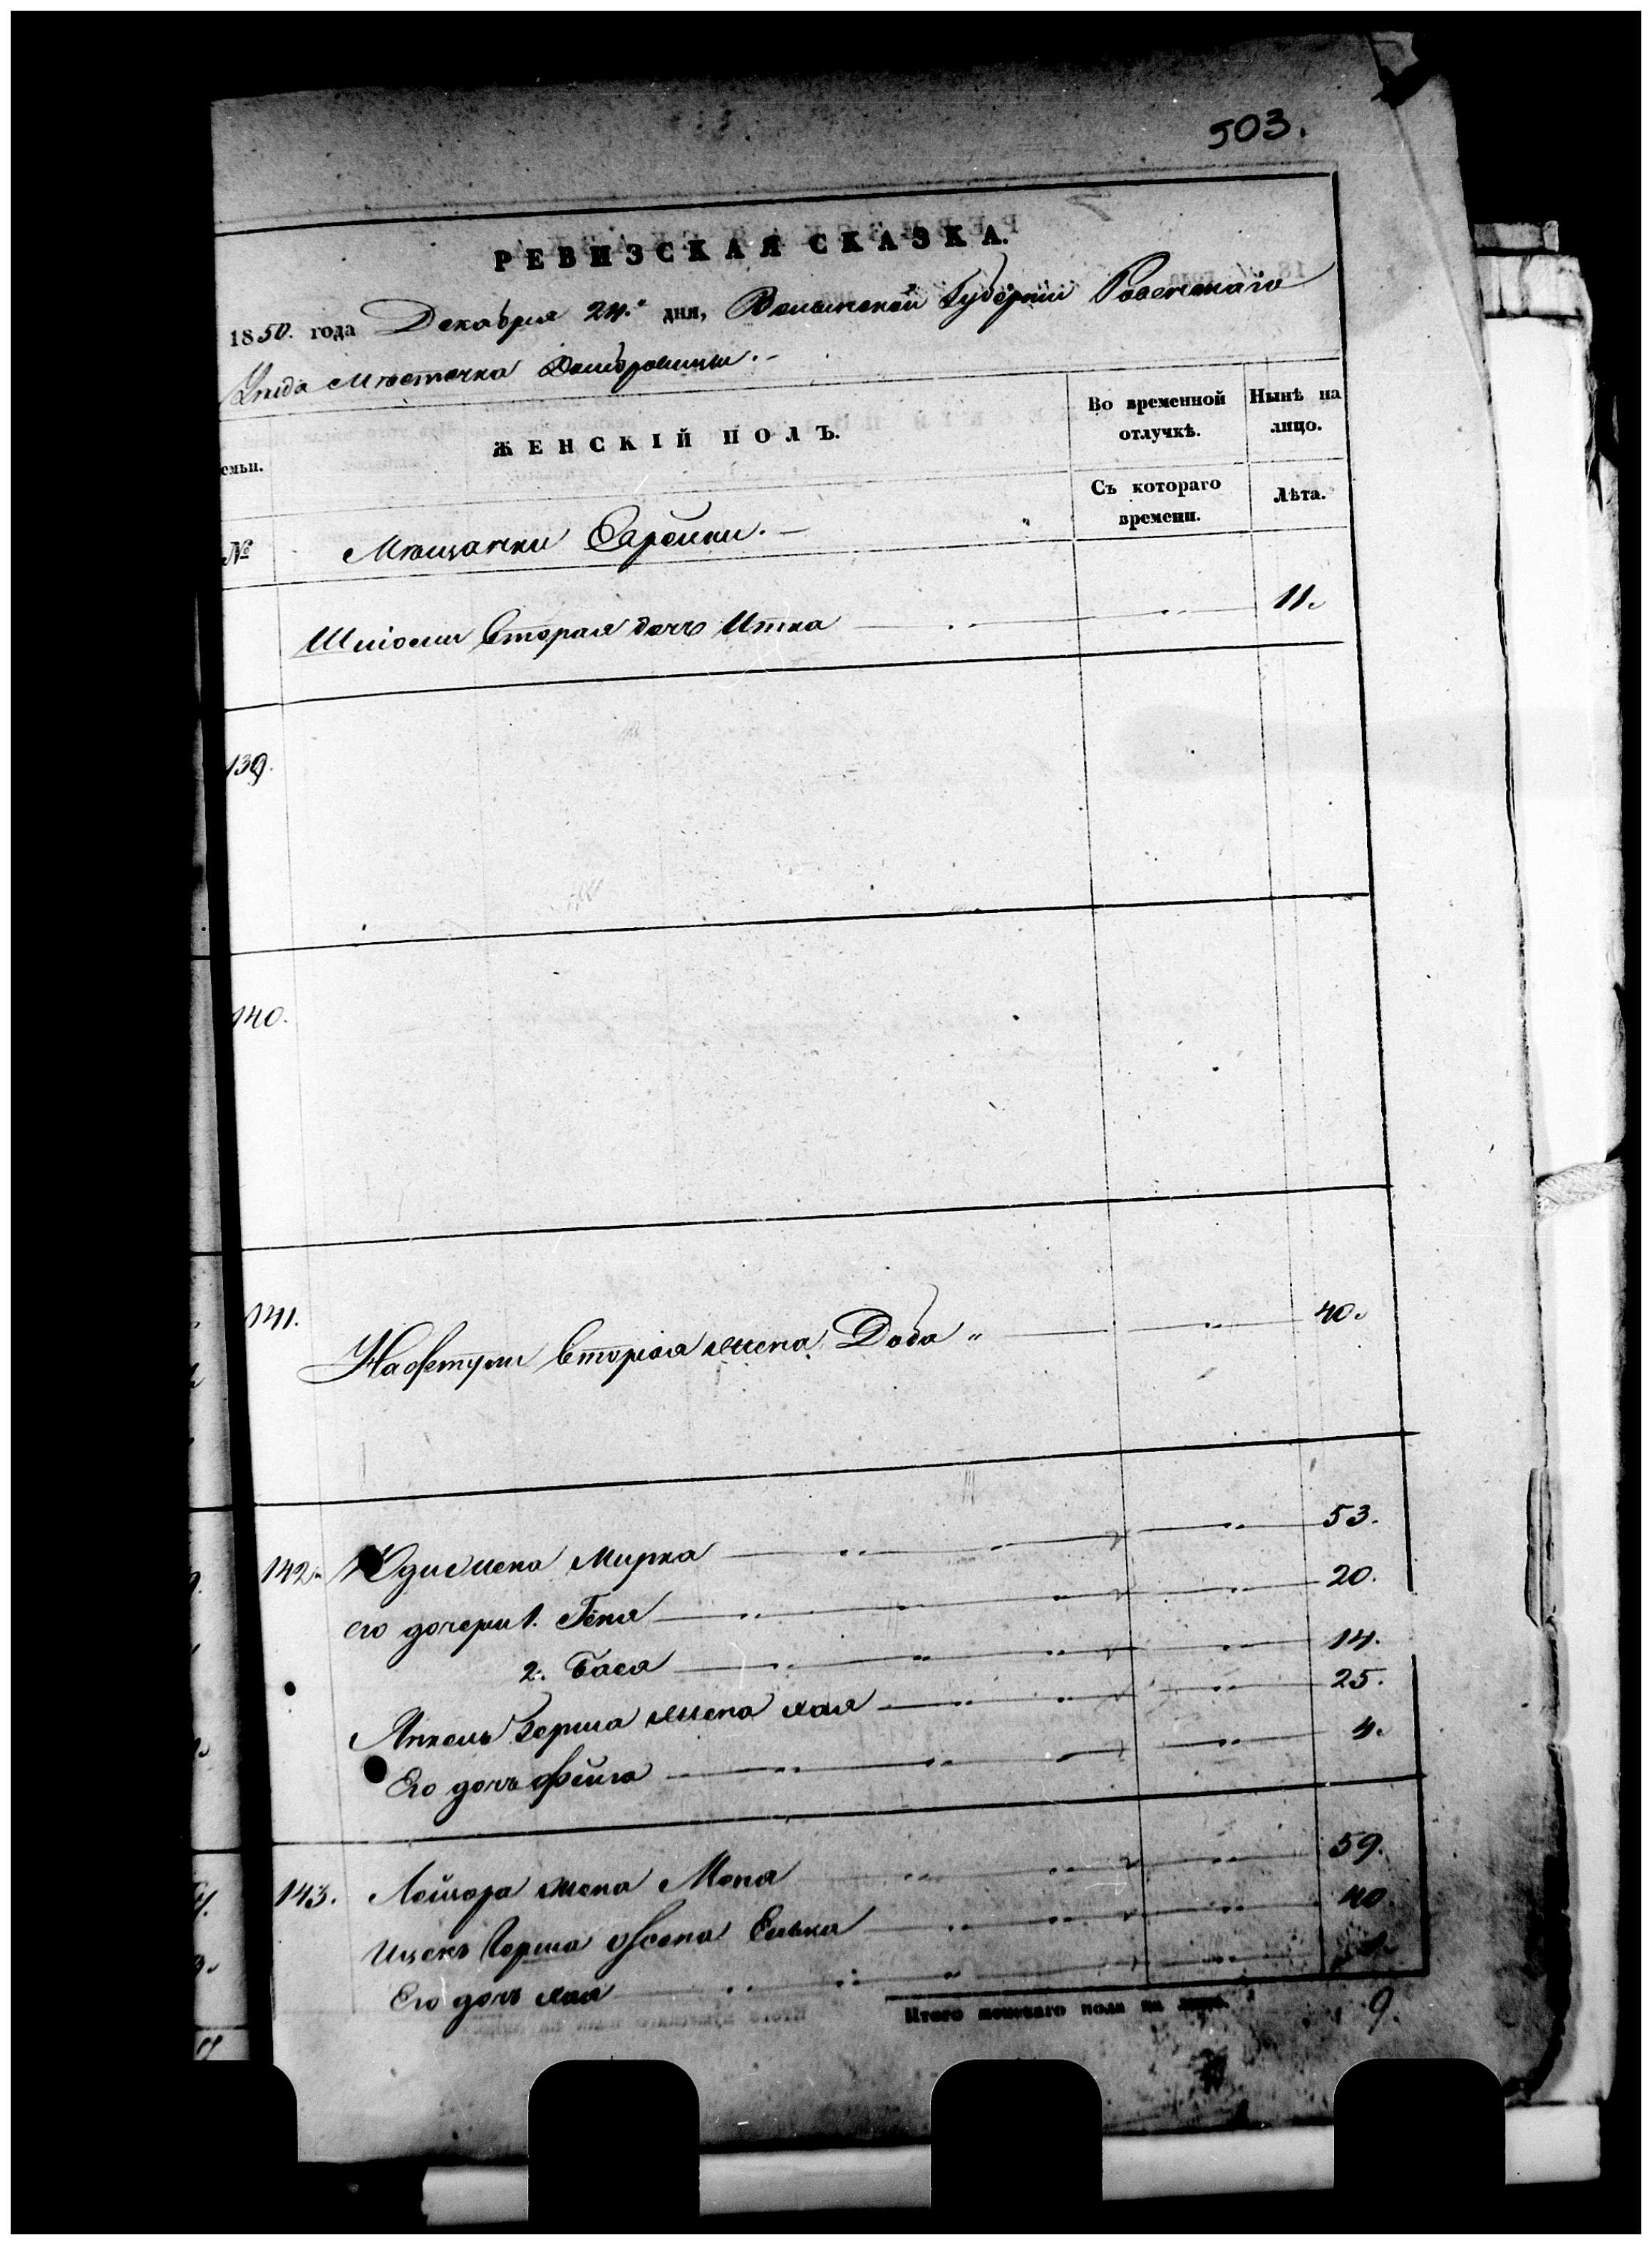 503.
РЕВИЗСКАЯ СКАЗКА.
1850. года Декабря 24. дня, Волынской Губернии Ровенскаго
Уезда Местечка Домбровицы.
емьи.
ЖЕНСКІЙ ПОЛЪ.
Во временной отлучкѣ.
Нынѣ на лицо.
№
Мещанки Евреики.
Съ котораго времени.
Лѣта.
Шліомы вторая дочь Итка 11.
139.
140.
141. Нафтули вторая жена Доба 40.
142. Юди жена Мирка 53.
его дочери 1. Геня 20.
2. Бася 14.
Янкель Герша жена Хая 25.
Его дочь Фейга 4.
143. Лейзора жена Меня 59.
Ицекъ Герша жена Елька 40
Его дочь Хая
Итого женскаго пола на лицо. 9.